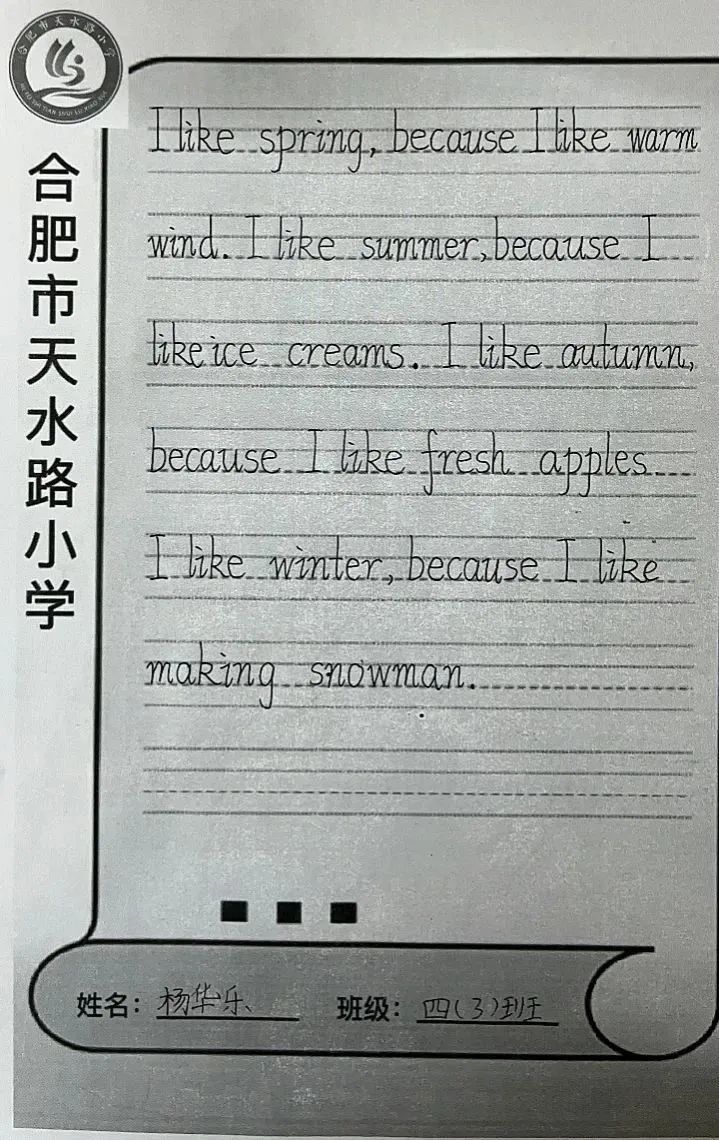 合肥市天水路小学
HE FEI SHI TIAN SHUI LU XIAO XUE
合肥市天水路小学
I like spring, because I like warm
wind. I like summer, because I
like ice creams. I like autumn,
because I like fresh apples
I like winter, because I like
making snowman.
姓名: 杨华乐 班级: 四(3)班